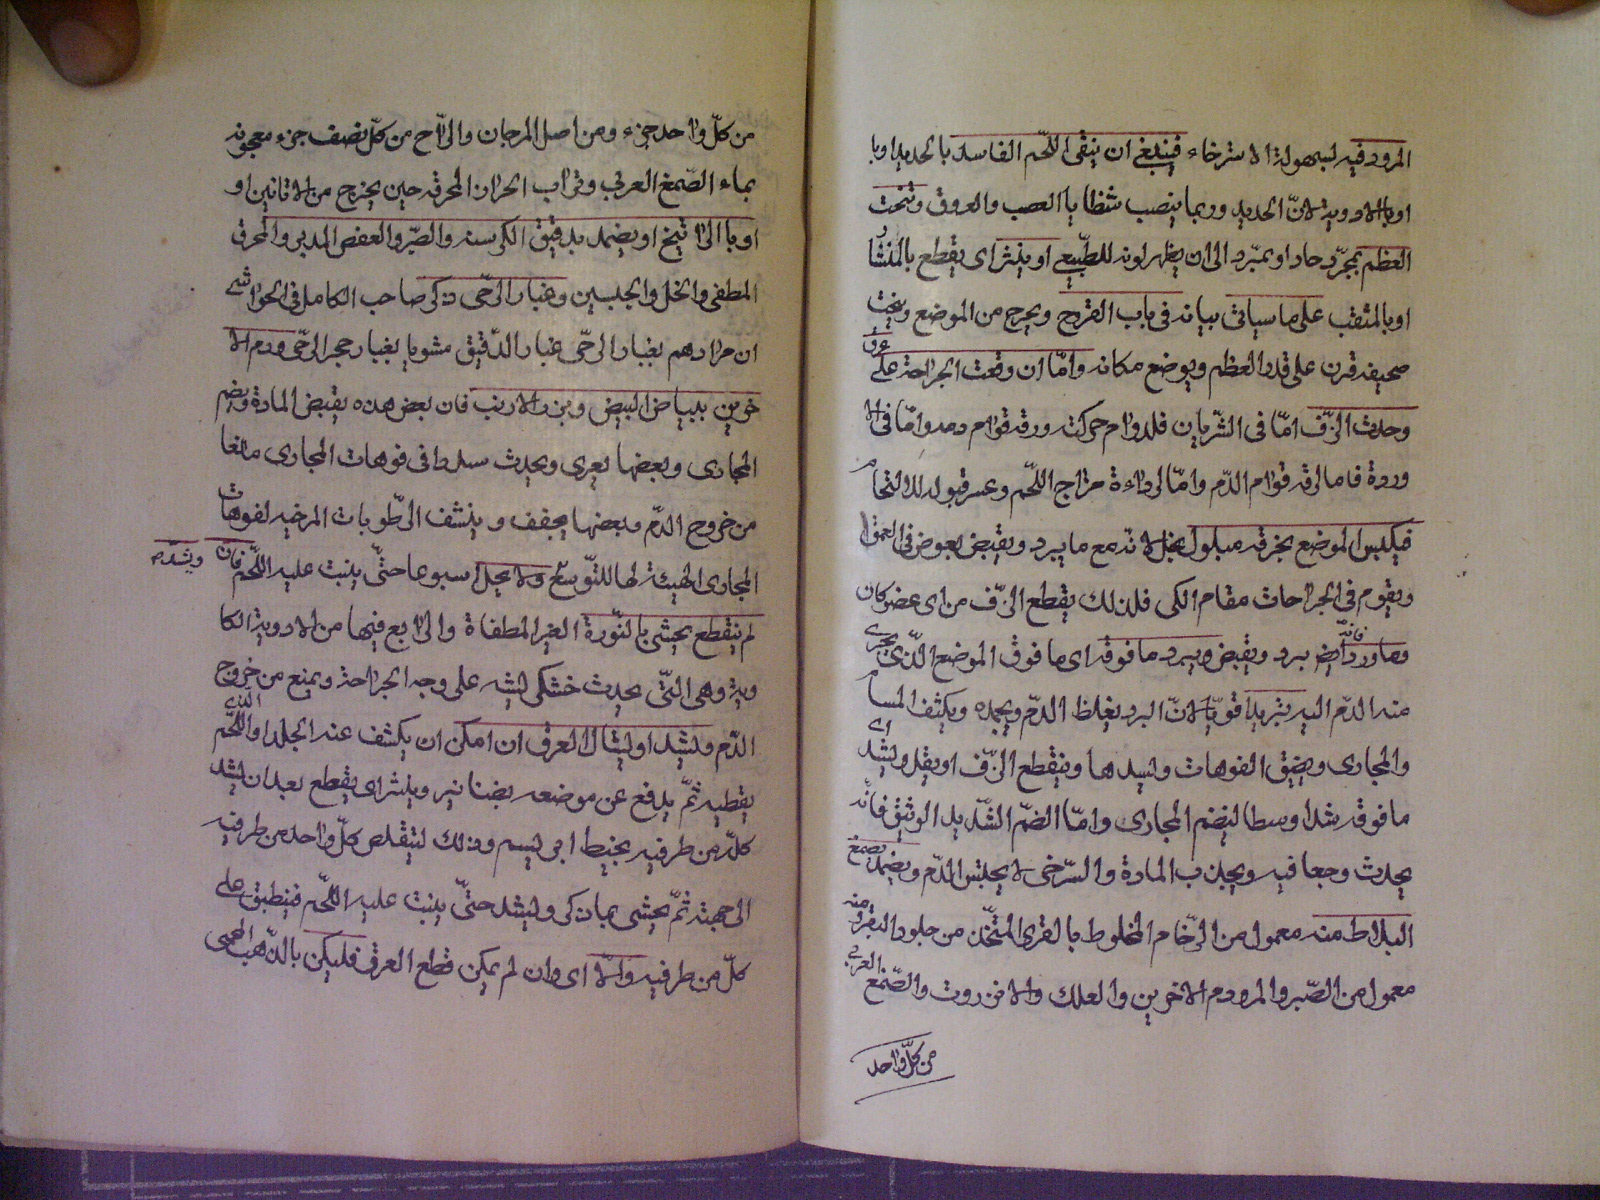 المرود فيه لسهولة الاسترخاء فينبغي ان ينقى اللحم الفاسد بالحديد او با
او بالادوية لانّ الحديد وربما ينصب شظايا العصب والعروق وتنحت
العظم بمجرّد حاد او بمبرد الى ان يظهر لونه الطبيعي او ينشر اى يقطع بالمنشار
او بالمثقب على ما سيأتى بيانه فى باب القروح ويخرج من الموضع وينحت
صحيفة قرن على قدر العظم ويوضع مكانه وامّا ان وقعت الجراحة على عرق
وحدث النزف امّا فى الشريان فلدوام حركته ورقة قوام دمه وامّا فى الا
وردة فاما لرقة قوام الدّم وامّا لرداءة مزاج اللّحم وعسر قبوله للالتحام
فيكبس الموضع بخرقة مبلول بخل لانه مع ما يبرد ويقبض يغوص فى العمق
ويقوم فى الجراحات مقام الكى فلذلك يقطع النزف من اى عضو كان
وماورد فانّه ايض يبرد ويقبض ويبرد ما فوقه اى ما فوق الموضع الّذى يجرى
منه الدّم اليه تبريدا قويّا لانّ البرد يغلظ الدّم ويجمده ويكثف المسام
والمجارى ويضيق الفوهات ويسدها وينقطع النزف او يقل ويشد اى
ما فوقه شدا وسطا لينضم المجارى وامّا الضمّ الشّديد الوثيق فانّه
يحدث وجعا فيه ويجذب المادة والرخى لا يحتبس الدّم ويضمد بصمغ
البلاط منه معمول من الرّخام المخلوط بالغرى المتّخذ من جلود البقر ومنه
معمول من الصّبر والمر ودم الاخوين والعلك والانزروت والصّمغ العربى
من كلّ واحد
من كلّ واحد جزء ومن اصل المرجان والزّاج من كلّ نصف جزء معجونة
بماء الصّمغ العربى وتراب الجرار المحرقة حين يخرج من الاتانين او
او بالزرنيخ او يضمد بدقيق الكرسنه والصّبر والعفص المدبر والمحرق
المطفى والخل والجبسين وغبار الرّحى ذكر صاحب الكامل فى الحواشى
ان مرادهم بغبار الرّحى غبار الدّقيق مشوبا بغبار حجر الرّحى ودم الا
خوين ببياض البيض وبر والارنب فان بعض هذه يقبض المادة ويضم
المجارى وبعضها يغرى ويحدث سددا فى فوهات المجارى مانعا
من خروج الدّم وبعضها يجفف وينشف الرّطوبات المرخية لفوهات
المجارى المهيئة لها للتّوسّع ولا يحل اسبوعا حتّى ينبت عليه اللّحم فان ويشدّه
لم ينقطع يحشى بالنّورة الغير المطفاة والزّاج فيها من الادوية الكا
وية وهى الّتى يحدث خشكريشه على وجه الجراحة ويمنع من خروج
الدّم ويشد او يشال العرق ان امكن ان يكشف عنه الجلد او اللّحم الّذى
يغطيه ثمّ يدفع عن موضعه بصنانير وينشر اى يقطع بعد ان يشد
كلّ من طرفيه بخيط ابريسم وذلك ليتقلص كلّ واحد من طرفيه
الى جهته ثمّ يحشى بماذكر ويشد حتّى ينبت عليه اللّحم فينطبق على
كلّ من طرفيه والّا اى وان لم يمكن قطع العرق فليكن بالذّهب المحمى